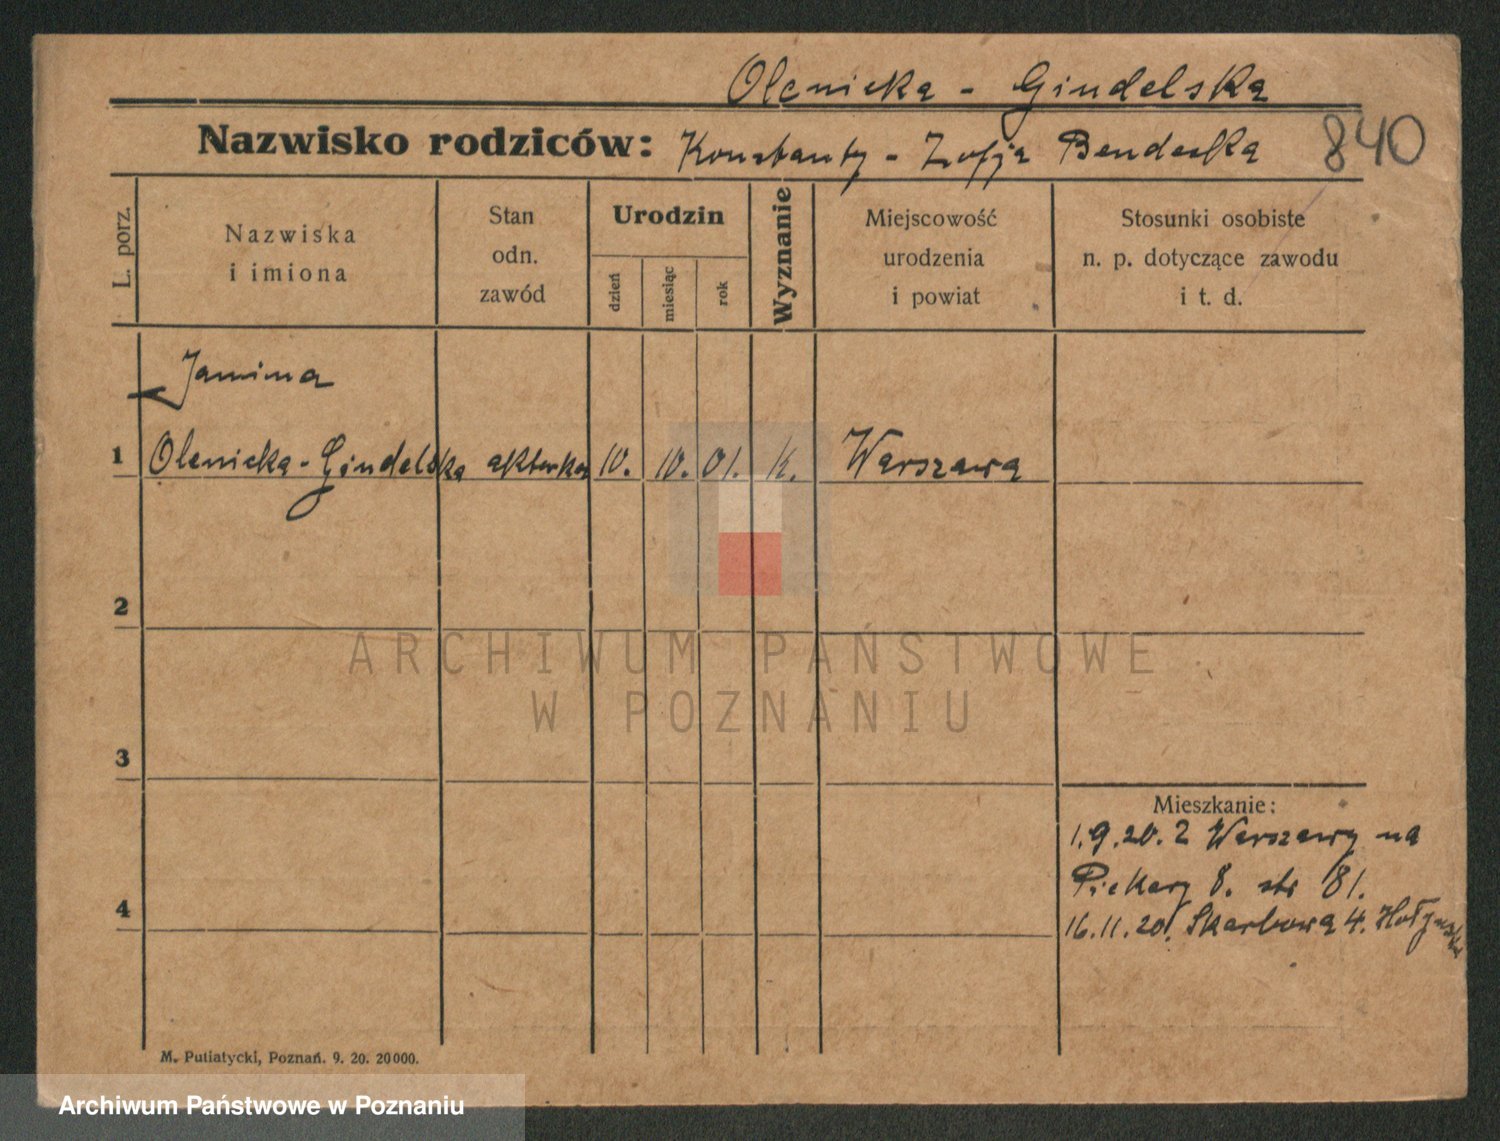 Olenicka - Gindelska
Nazwisko rodziców: Konstanty - Zofja Benderska 840
L. porz.
Nazwiska
i imiona
Stan
odn.
zawód
Urodzin
dzień
miesiąc
rok
Wyznanie
Miejscowość
urodzenia
i powiat
Stosunki osobiste
n. p. dotyczące zawodu
i t. d.
Janina
1 Olenicka - Gindelska aktorka 10. 10. 01. k. Warszawa
2
ARCHIWUM PAŃSTWOWE
W POZNANIU
3
Mieszkanie:
1.9.20. z Warszawy na
Piekary 8. str 81.
4
16.11.20. Skarbowa 4.
M. Putiatycki, Poznań. 9. 20. 20000.
Archiwum Państwowe w Poznaniu